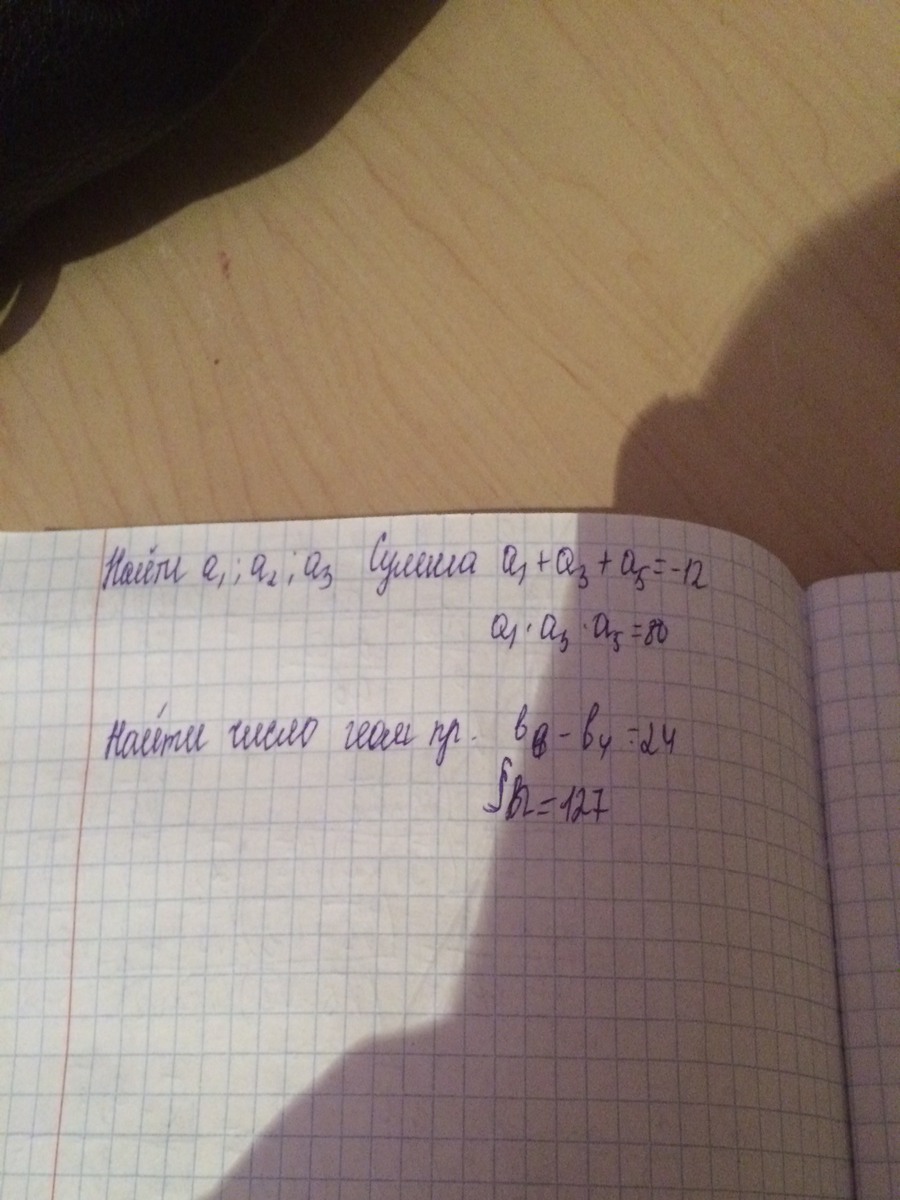 Найти a₁; a₂; a₃ Сумма a₁ + a₃ + a₅ = -12
a₁ · a₃ · a₅ = 80
Найти число геом пр. b₆ - b₄ = 24
= 127